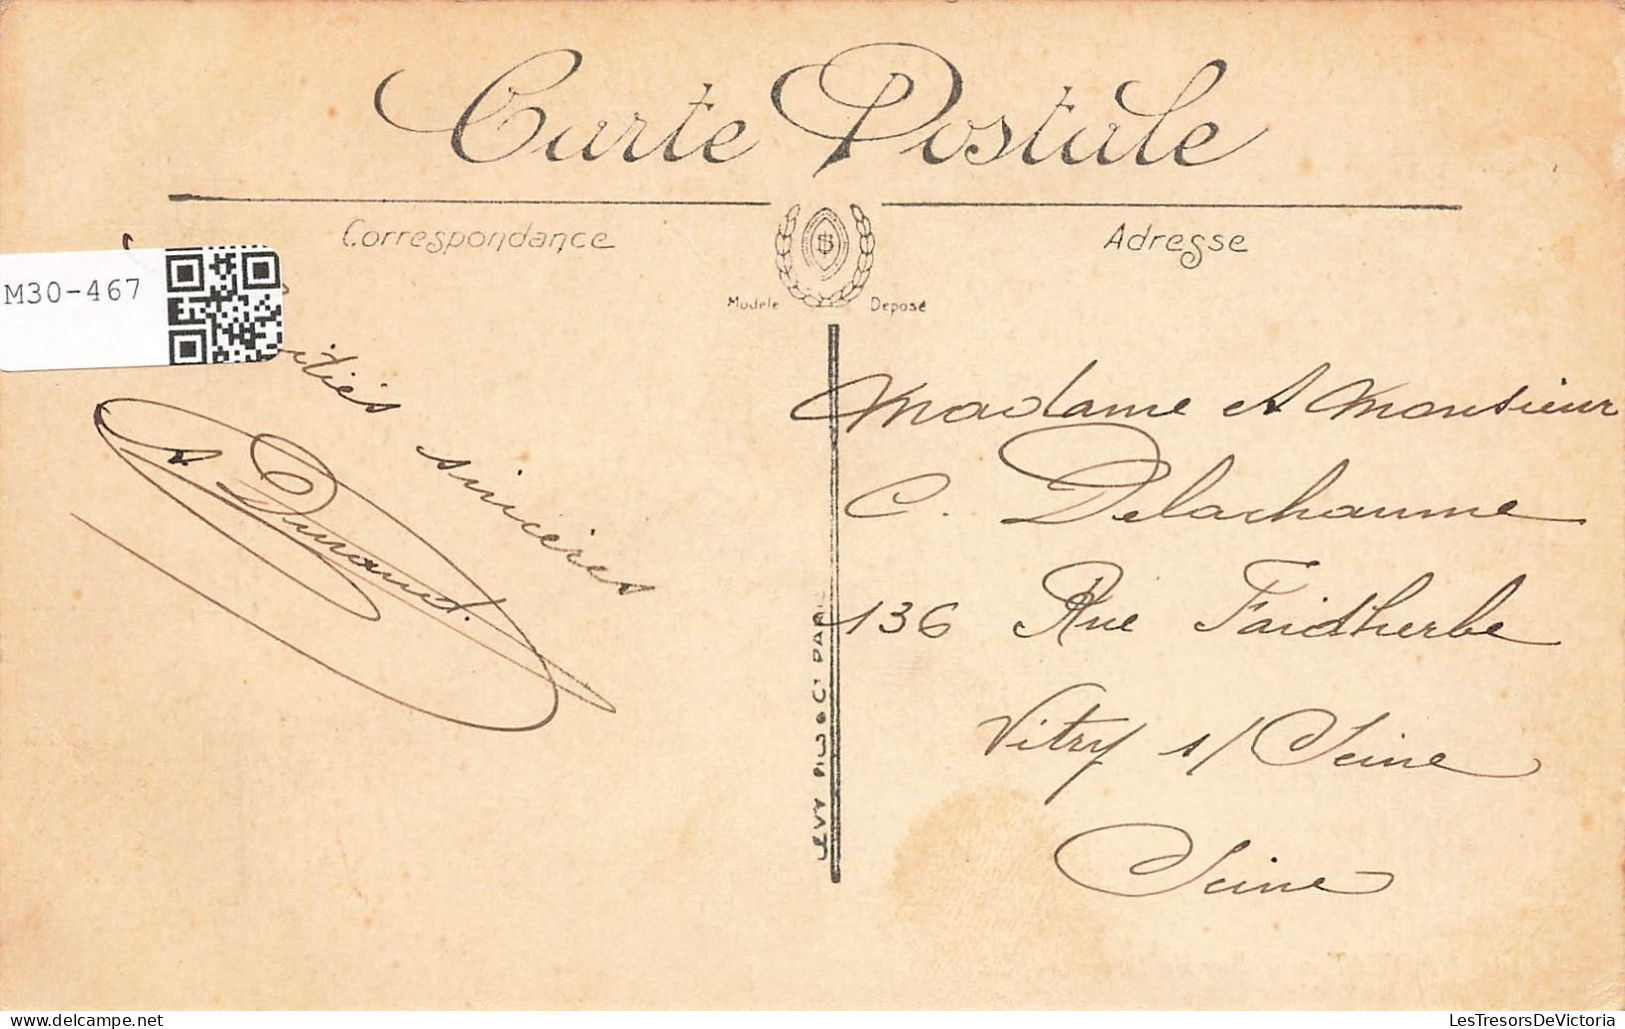 Carte Postale
Correspondance
Adresse
Modèle Déposé
M30-467
sincères
A Durand.
LEVY FILS & Cie PARIS
Madame et Monsieur
C. Delachaume
136 Rue Faidherbe
Vitry s/ Seine
Seine
LesTresorsDeVictoria